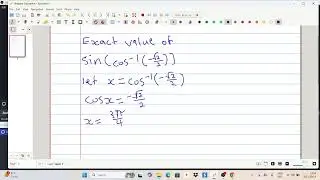 Exact value of
sin[cos⁻¹(-√2/2)]
let x = cos⁻¹(-√2/2)
cosx = -√2/2
x = 3π/4